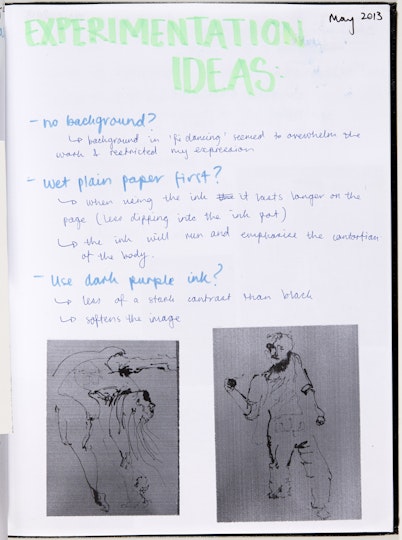 May 2013
EXPERIMENTATION
IDEAS:
- no background?
↳ background in 'dancing' seemed to overwhelm the
work & restricted my expression
- Wet plain paper first?
↳ when using the ink it lasts longer on the
page (less dipping into the ink pot)
↳ the ink will run and emphasise the contortion
of the body.
- Use dark purple ink?
↳ less of a stark contrast than black
↳ softens the image